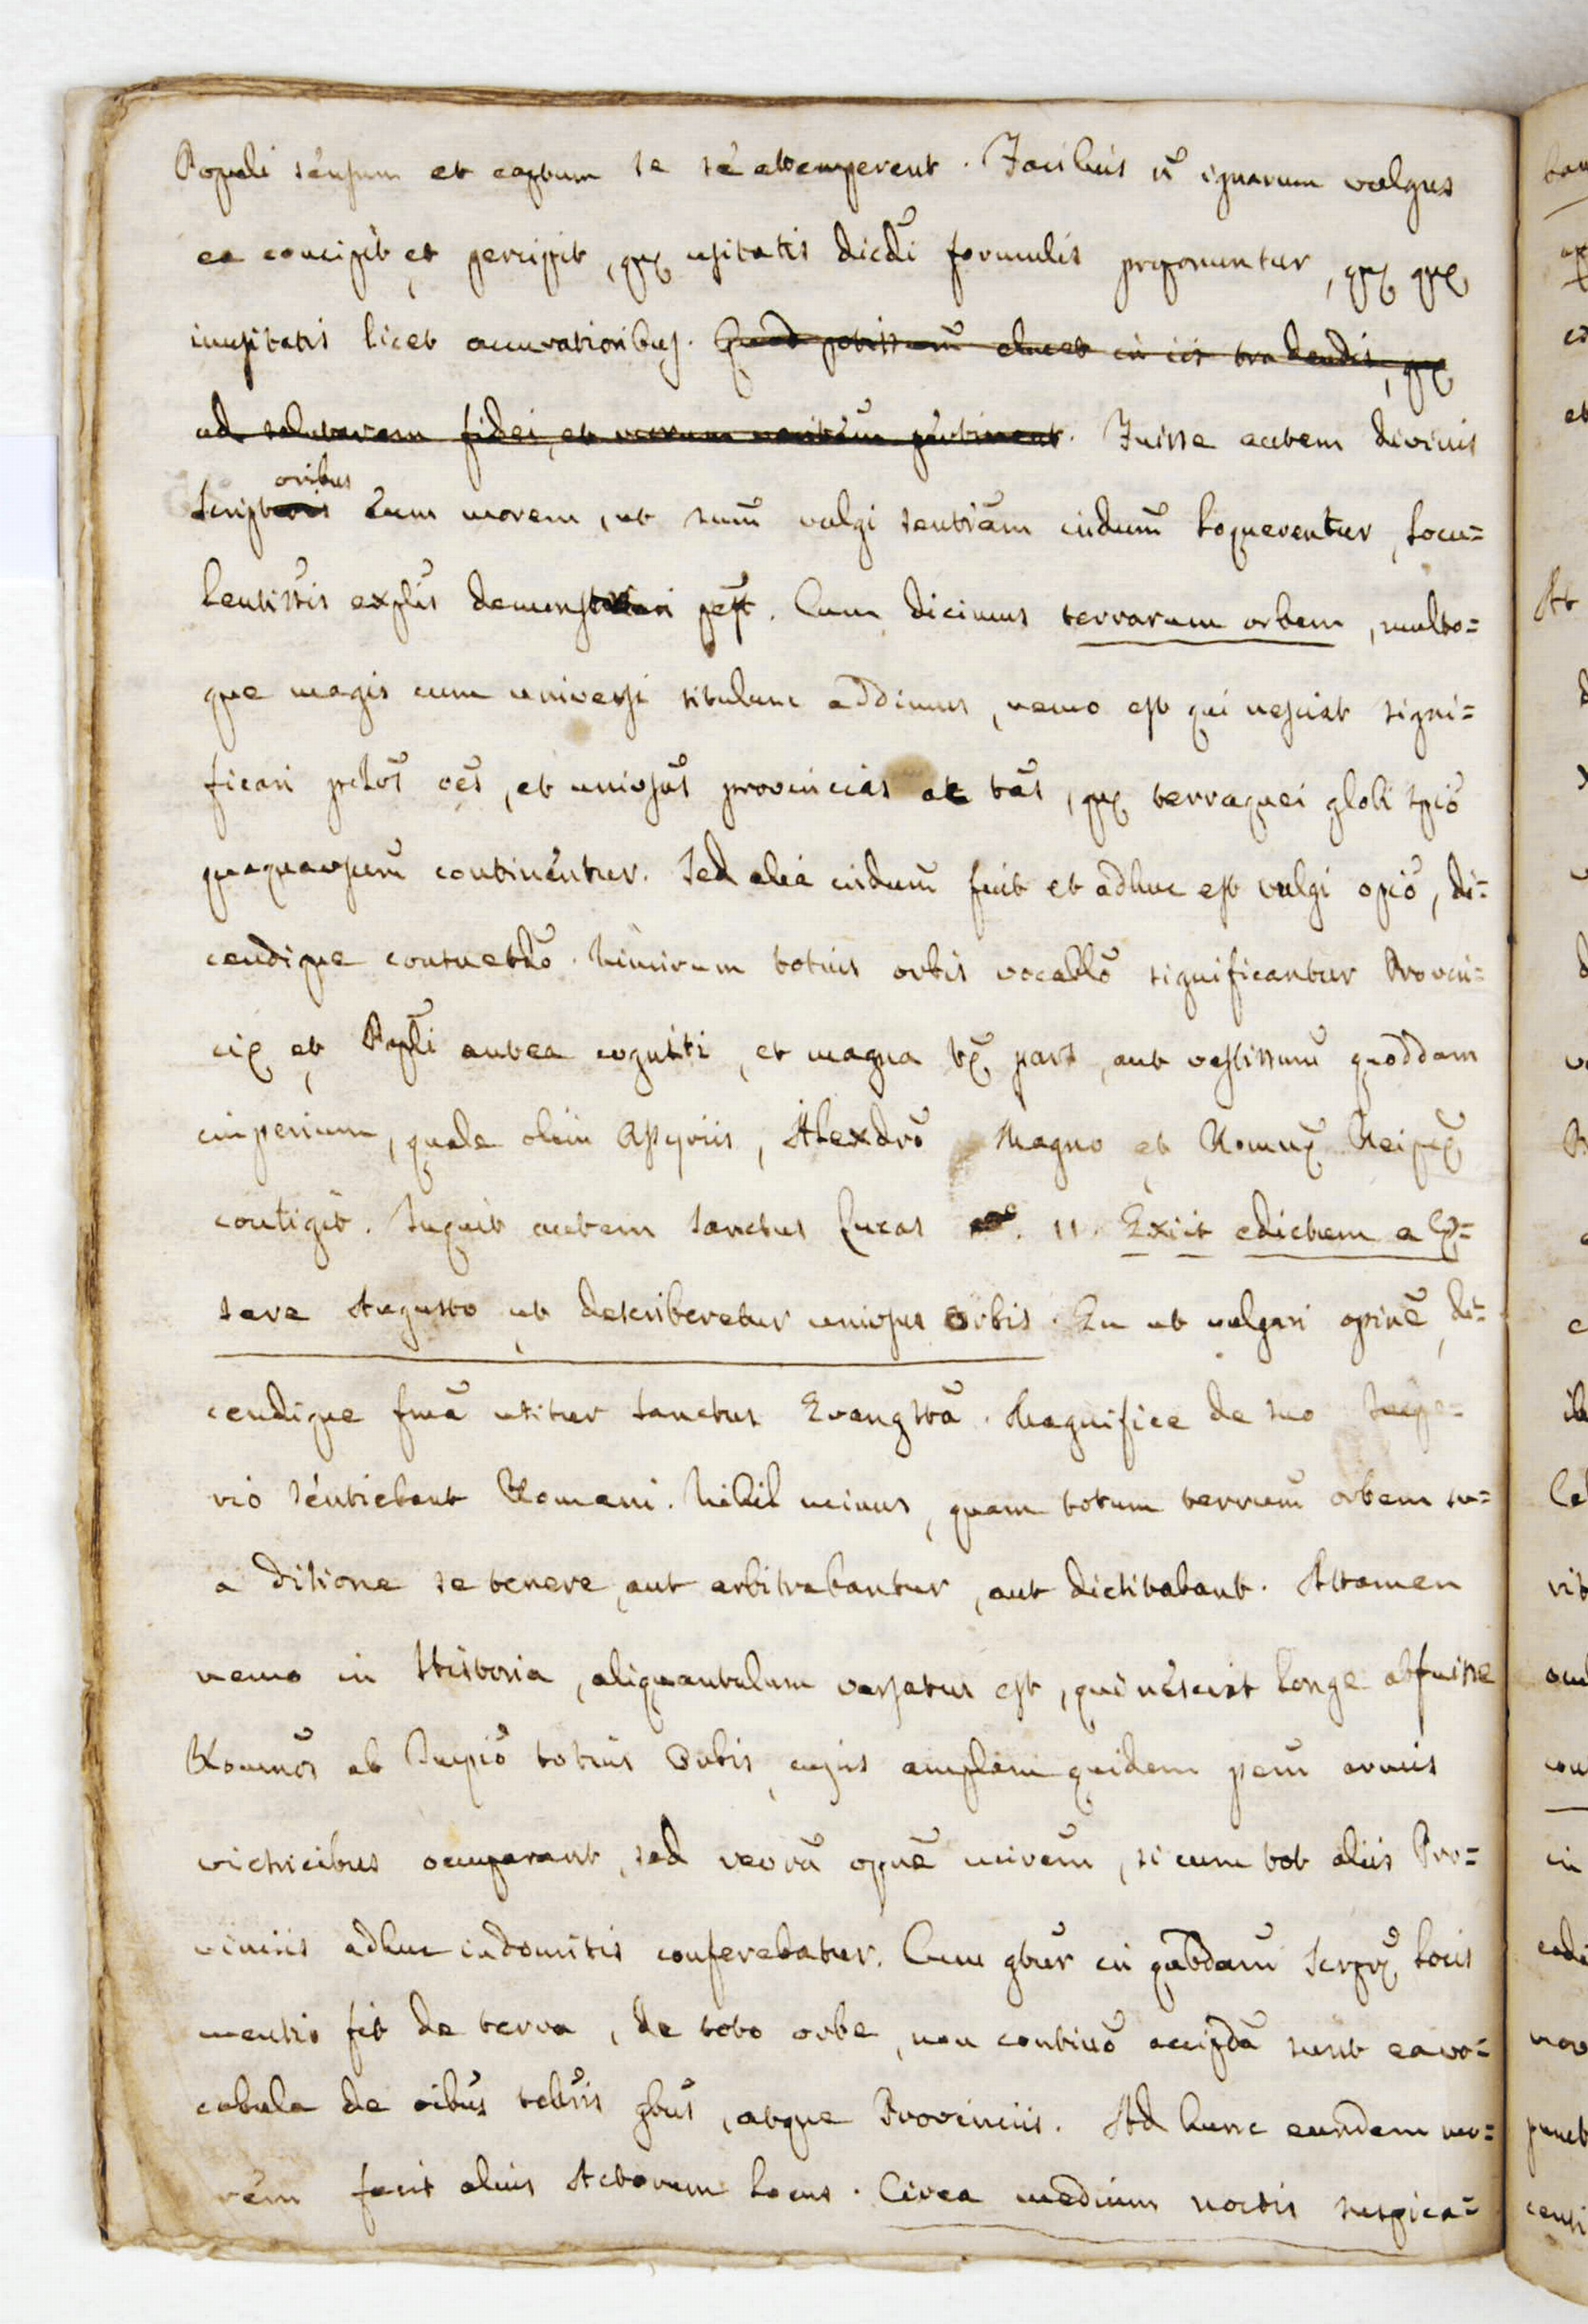 Populi sensum et captum se se attemperent. Facilius n̄ ignarum vulgus
ea concipit et percipit, quę usitatis dicdi formulis proponuntur, quā quę
inusitatis licet accurationibus. Quod potissimū elucet in iis tradendis, quę
ad salutarem fidei, et morum pertinent. Fuisse autem divinis
scriptoribus eum morem, ut scm̄ vulgi sentiam interdum loquerentur, locu=
lentissis explis demonstrari pest. Cum dicimus terrarum orbem, multo=
que magis cum universi titulum addimus, nemo est qui nesciat signi=
ficari pplos oēs, et univsas provincias at tās, quę terraquei globi spiō
quaquaversum continentur. Sed alia interdum fuit et adhuc est vulgi opiō, di=
cendique consuetdō. Nimirum totius orbis vocablō significantur Provin=
cię et Popli antea cogniti, et magna tę pars, aut vastissimū quoddam
imperium, quale olim Assyriis, Alexdrō Magno et Romnę Reipcę
contigit. Inquit autem Sanctus Lucas 11. Exiit edictum a Cę=
sare Augusto ut describeretur univsus Orbis. En ut vulgari opinē, di=
cendique fmā utitur Sanctus Evangstā. Magnifice de suo Impe=
rio sentiebant Romani. Nihil minus, quam totum terrarum orbem su=
a ditione se tenere, aut arbitrabantur, aut dictitabant. Attamen
nemo in Historia, aliquantulum versatus est, qui nesciat longe abfuisse
Romnos ab Impiō totius Orbis, cujus amplam quidem pem armis
victricibus occuparant, sed verā opnē minem, si cum tot aliis Pro=
vinciis adhuc indomitis conferebatur. Cum gtur in qubdam Scrprę locis
mentio fit de terra, de toto orbe, non continuō accipdā sunt ea vo=
cabula de oibus tellris gbus, atque Provinciis. Ad hunc eundem mo=
rem facit alius Actorum locus. Circa medium noctis suspica=